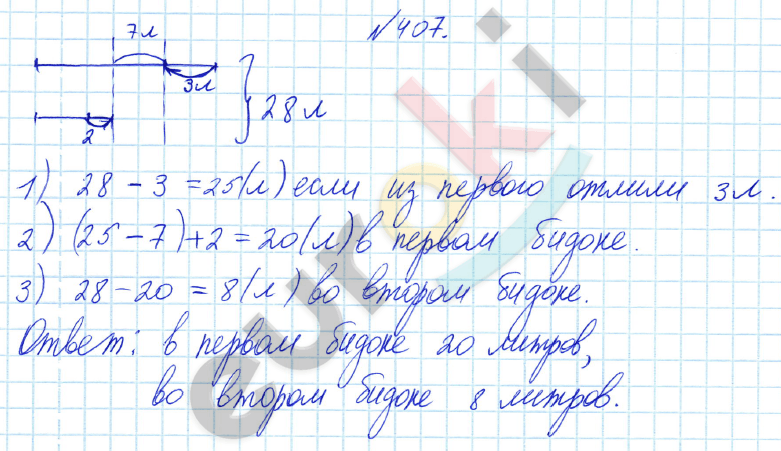 №407.
7л
3л
28 л
2
1) 28 - 3 = 25(л) если из первого отлили 3л.
2) (25 - 7) + 2 = 20(л) в первом бидоне.
3) 28 - 20 = 8(л) во втором бидоне.
Ответ: в первом бидоне 20 литров,
во втором бидоне 8 литров.
euroki